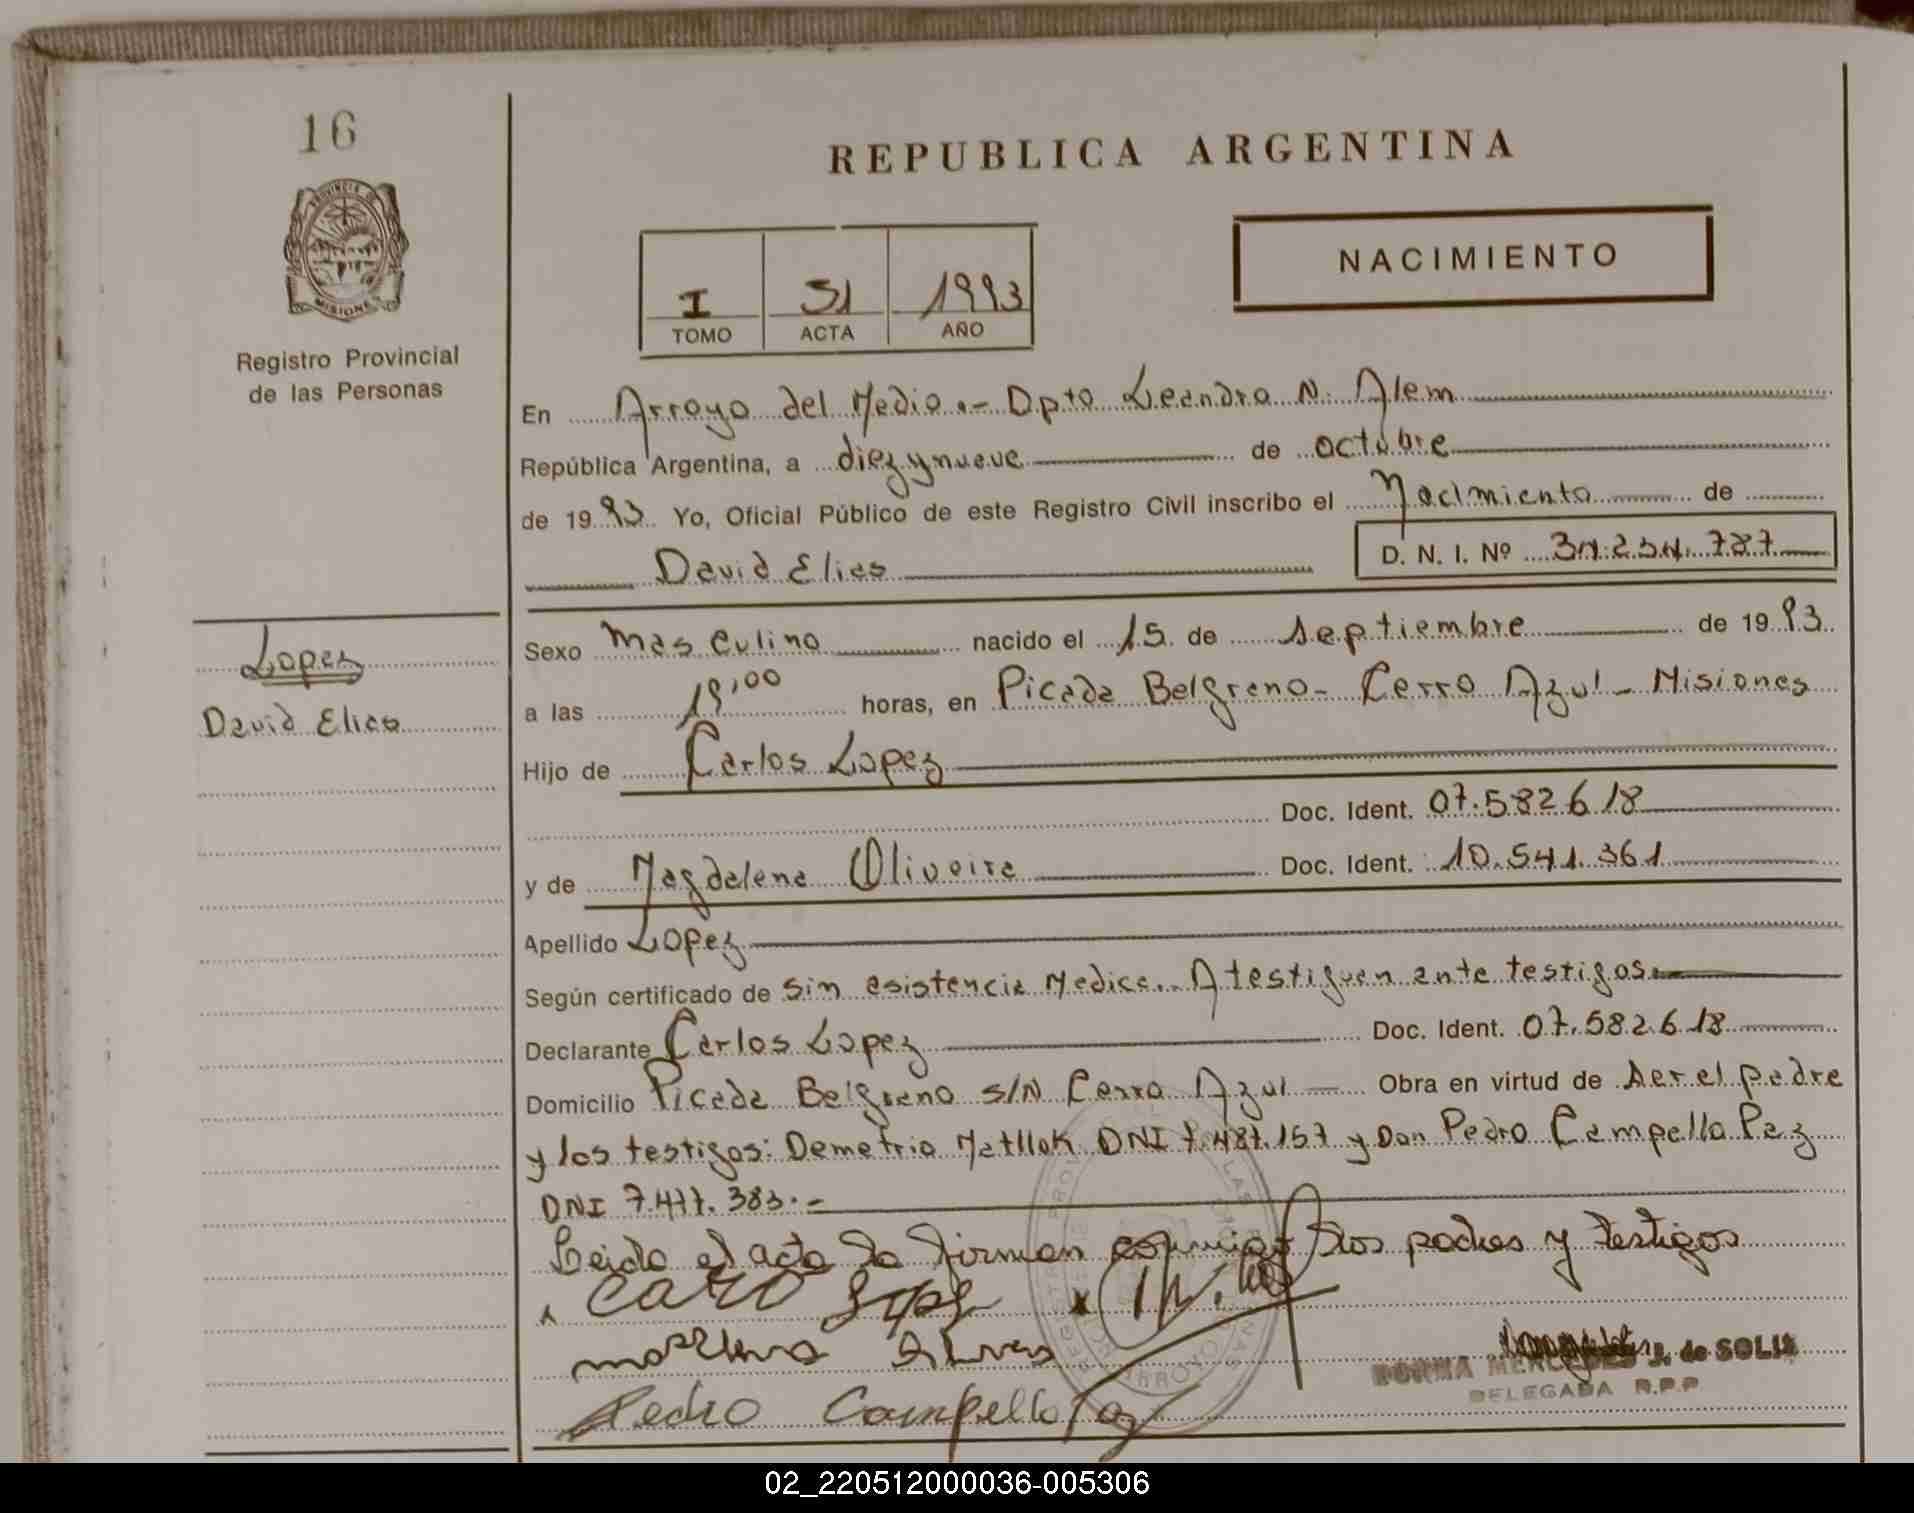 16
PROVINCIA DE
MISIONES
Registro Provincial
de las Personas
REPUBLICA ARGENTINA
NACIMIENTO
I 51 1993
TOMO ACTA AÑO
En Arroyo del Medio.- Dpto Leandro N. Alem
República Argentina, a diez y nueve de octubre
de 1993 Yo, Oficial Público de este Registro Civil inscribo el Nacimiento de
David Elias D. N. I. Nº 34.234.787
Lopez
David Elias
Sexo Masculino nacido el 15 de septiembre de 1993
a las 19,00 horas, en Picada Belgrano - Cerro Azul - Misiones
Hijo de Carlos Lopez
Doc. Ident. 07.582618
y de Magdalena Oliveira Doc. Ident. 10.541.361
Apellido Lopez
Según certificado de sin asistencia Medica. Atestiguan ante testigos.
Declarante Carlos Lopez Doc. Ident. 07.582618
Domicilio Picada Belgrano S/N Cerro Azul Obra en virtud de ser el padre
y los testigos: Demetrio DNI 7.487.157 y Don Pedro Campello Paz
DNI 7.477.383.-
Leido el acta la firman conmigo los padres y testigos
Pedro Campello Paz
NORMA MERCEDES J. de SOLIS
DELEGADA R.P.P.
02_220512000036-005306